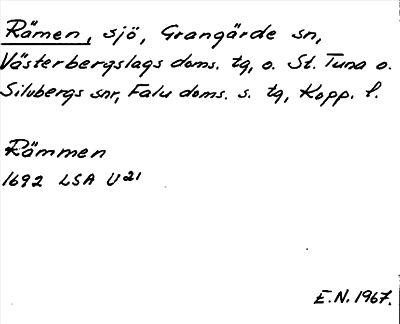 Rämen, sjö, Grangärde sn,
Västerbergslags doms. tg, o. St. Tuna o.
Silvbergs snr, Falu doms. s. tg, Kopp. l.
Rämmen
1692 LSA U21
E.N. 1967.